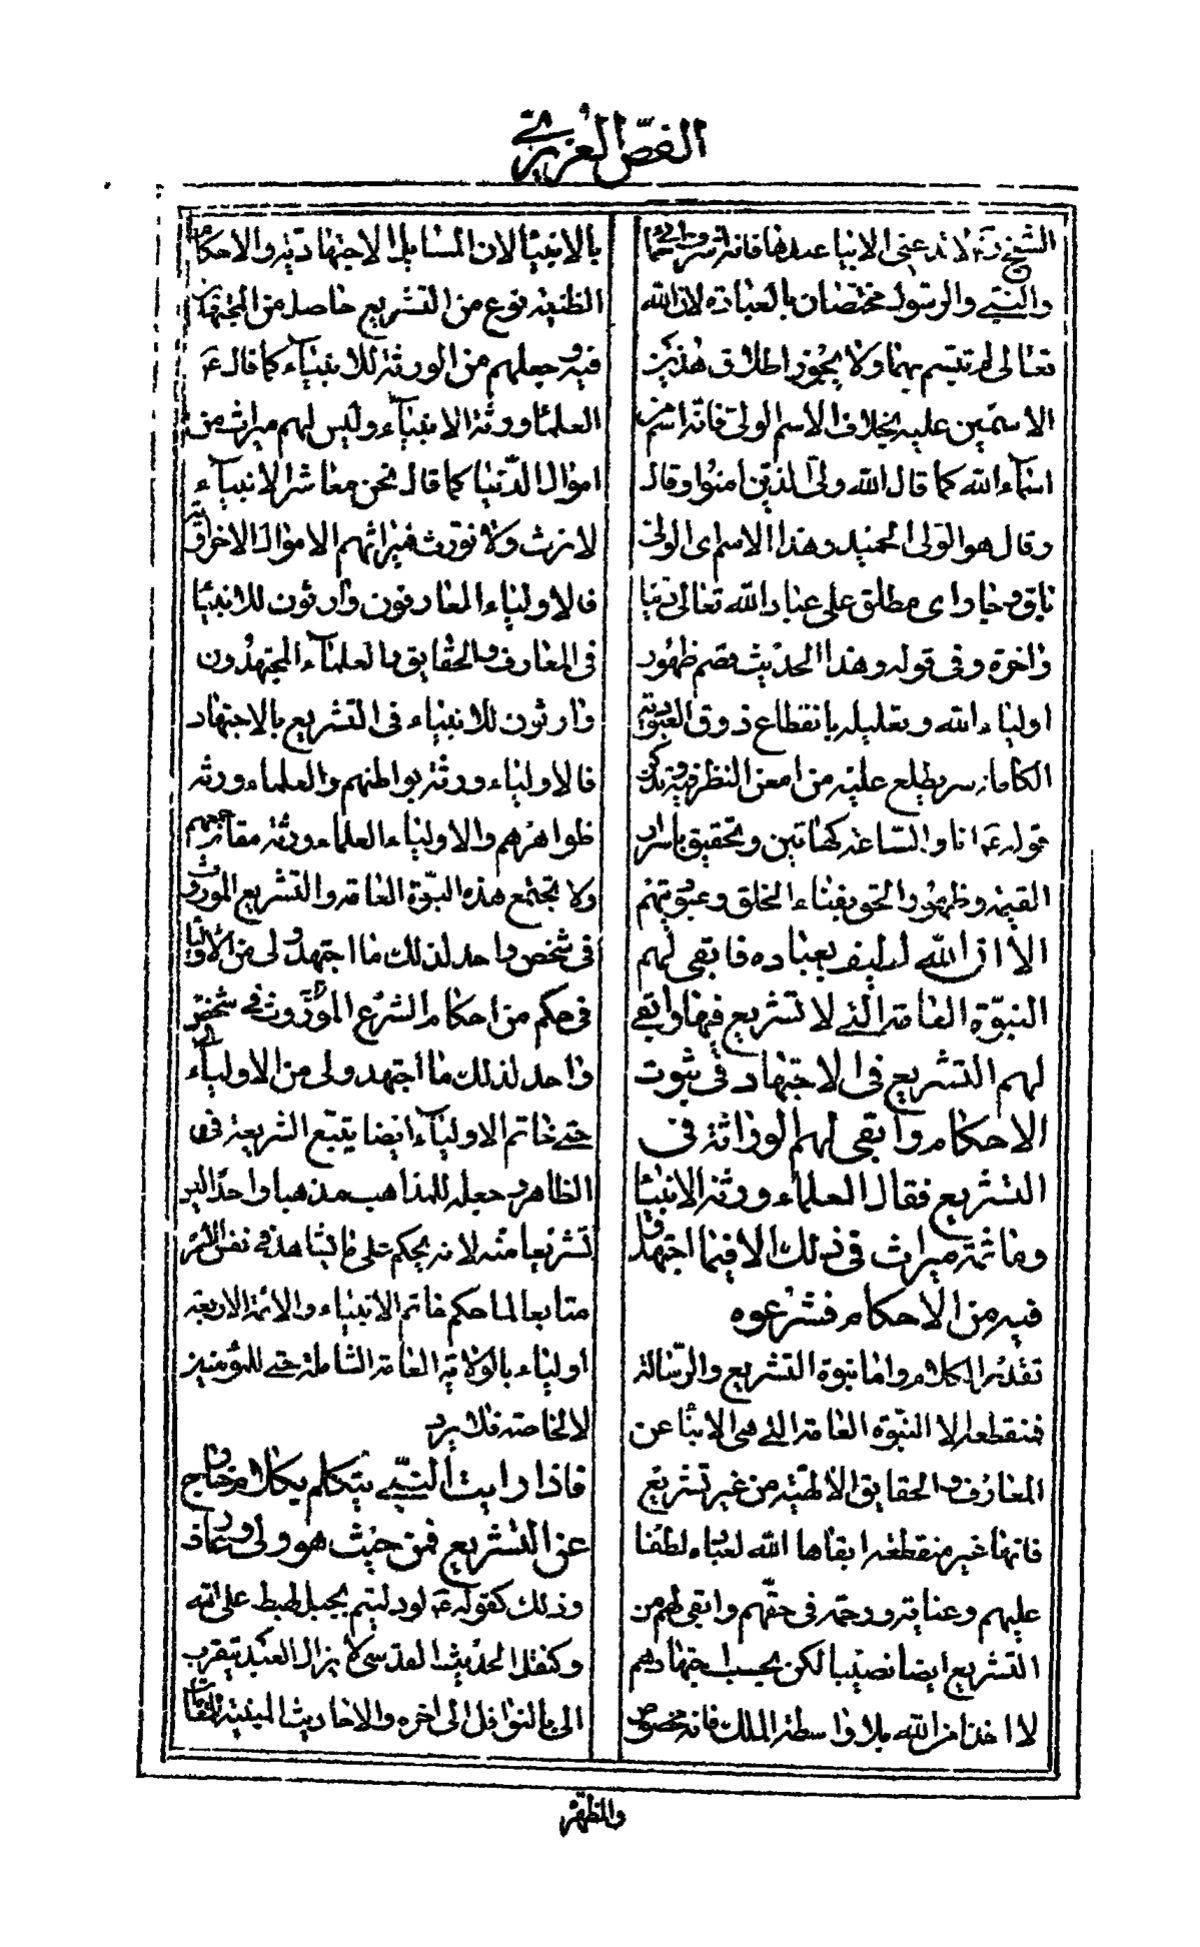 الفصّ العزيزي
والنبي والرسول مختصان بالعباده لان الله
تعالى لم يتسم بهما ولا يجوز اطلاق هذين
الاسمين عليه بخلاف الاسم الولى فانه اسم من
اسماء الله كما قال الله ولى الذين امنوا وقال
وقال هو الولى الحميد وهذا الاسم اى الولى
باق وجار اى مطلق على عباد الله تعالى دنيا
واخرة وفى قوله وهذا الحديث قصم ظهور
اولياء الله وتعليله بانقطاع ذوق العبودية
الكامله سر يطلع عليه من امعن النظر فيه
قوله انا والساعة كهاتين وتحقيق باسرار
القيمة وظهور الحق بفناء الخلق وعبوديتهم
الا ان الله لطيف بعباده فابقى لهم
النبوّة العامة التي لا تشريع فيها وابقى
لهم التشريع فى الاجتهاد فى ثبوت
الاحكام وابقى لهم الوراثة فى
التشريع فقال العلماء ورثة الانبيا
وما ثمة ميراث فى ذلك الا فيما اجتهدوا
فيه من الاحكام فشرعوه
تقدير الكلام واما نبوة التشريع والرسالة
فمنقطعة الا النبّوة العامة التي هى الانباء عن
المعارف والحقايق الالهيّة من غير تشريع
فانها غير منقطعة ابقاها الله لعباده لطفا
عليهم وعناية ورحمة فى حقهم وابقى لهم من
التشريع ايضا نصيبا لكن بحسب اجتهادهم
لا اخذا من الله بلا واسطة الملك فانه مخصوص
بالانبيا لان المسايل الاجتهاديّة والاحكام
الظنية نوع من التشريع حاصل من المجتهدين
فيه وجعلهم من الورثة للانبياء كما قال
العلماء ورثة الانبياء وليس لهم ميراث من
اموال الدّنيا كما قال نحن معاشر الانبياء
لا نرث ولا نورث فميراثهم الاموال الاخراوية
فالاولياء العارفون وارثون للانبيا
فى المعارف والحقايق والعلماء المجتهدون
وارثون للانبياء فى التشريع بالاجتهاد
فالاولياء ورثة بواطنهم والعلماء ورثة
ظواهرهم والاولياء العلماء ورثة مقام جمعهم
ولا تجتمع هذه النبّوة العامة والتشريع الموروث
فى شخص واحد لذلك ما اجتهد ولى من الاوليا
فى حكم من احكام الشرع الموروث في شخص
واحد لذلك ما اجتهد ولى من الاولياء
حتى خاتم الاولياء ايضا يتبع الشريعة فى
الظاهر وجعله للمذاهب مذهبا واحدا ليس
تشريعا منه لانه يحكم على ما يشاهد في نفس الامر
متابعا لما حكم خاتم الانبياء والائمة الاربعة
اولياء بالولاية العامة الشاملة حتى للمؤمنين
لا الخاصة فلا يرد
فاذا رايت النبّي يتكلم بكلام خارج
عن التشريع فمن حيث هو ولى وعارف
وذلك كقوله لو دليتم بحبل لهبط على الله
وكنقل الحديث القدسى لا يزال العبد يتقرب
الى بالنوافل الى اخره والاحاديث المبينة للمقامات